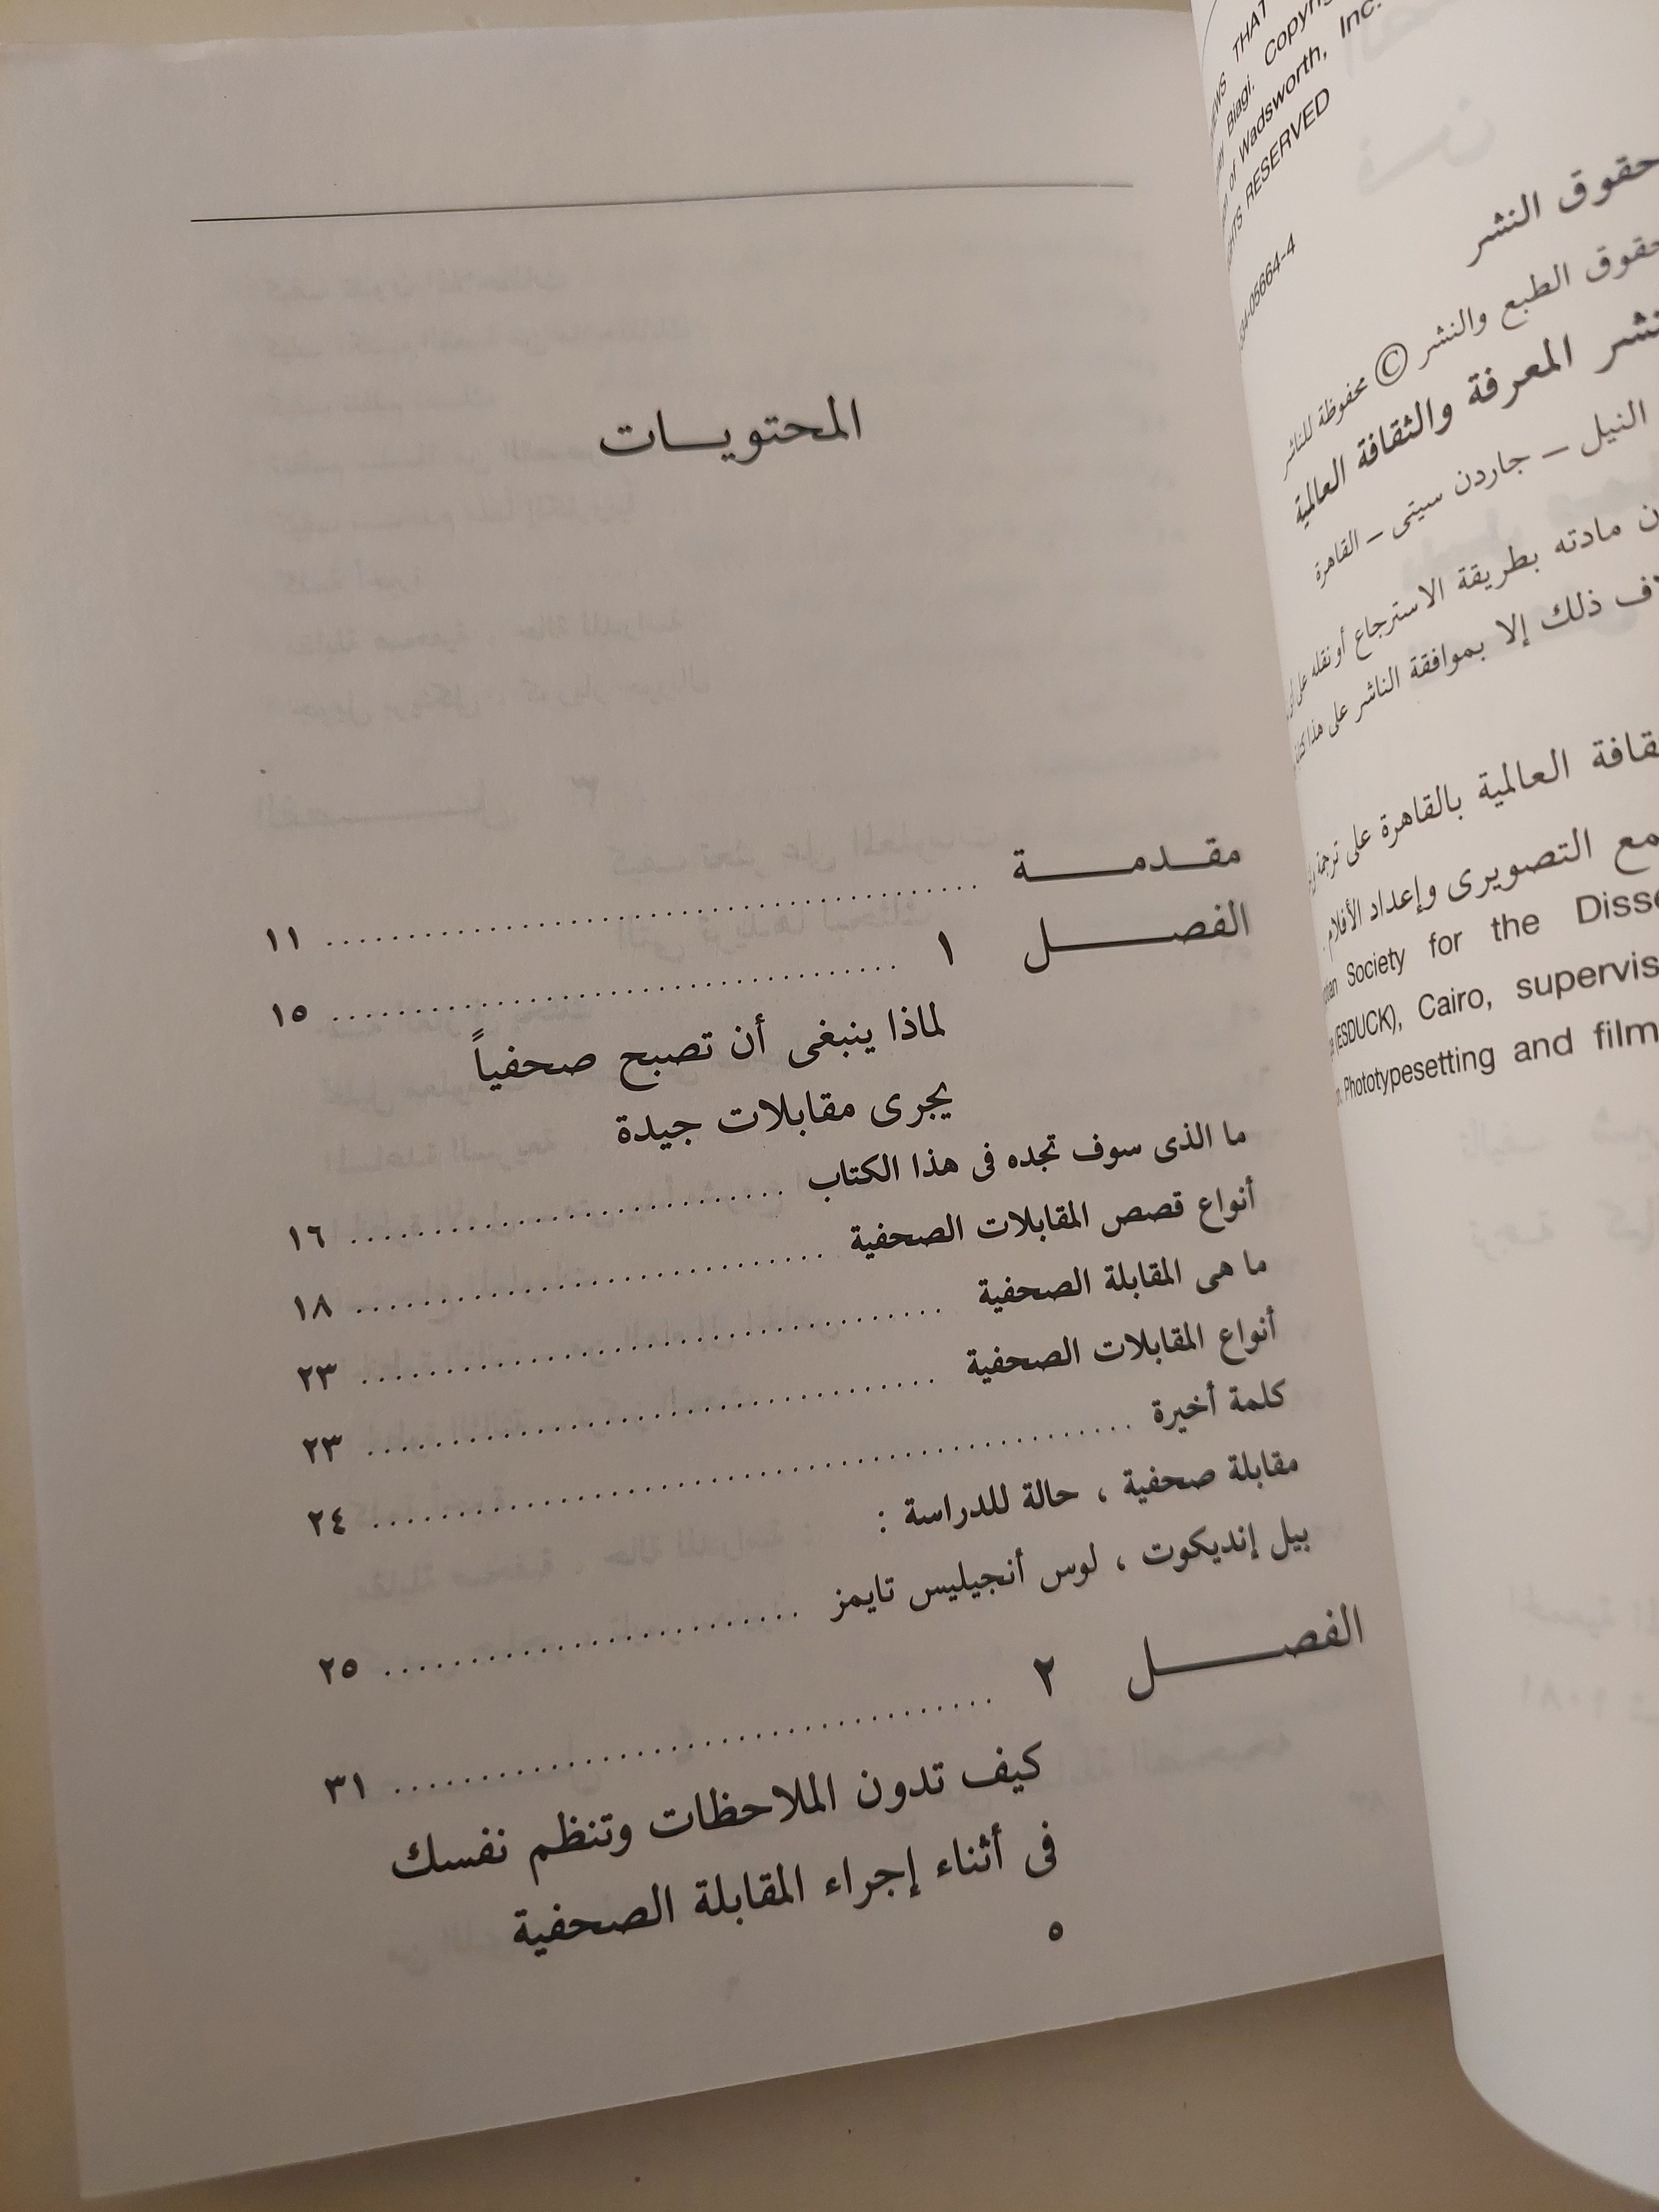 المحتويات
مقدمة ........ ١١
الفصل ١ ........ ١٥
لماذا ينبغى أن تصبح صحفياً
يجرى مقابلات جيدة
ما الذى سوف تجده فى هذا الكتاب ........ ١٦
أنواع قصص المقابلات الصحفية ........ ١٨
ما هى المقابلة الصحفية ........ ٢٣
أنواع المقابلات الصحفية ........ ٢٣
كلمة أخيرة ........ ٢٤
مقابلة صحفية ، حالة للدراسة :
بيل إنديكوت ، لوس أنجيليس تايمز ........ ٢٥
الفصل ٢ ........ ٣١
كيف تدون الملاحظات وتنظم نفسك
فى أثناء إجراء المقابلة الصحفية
٥
THAT
Biagi. Copyri
of Wadsworth, Inc.
RESERVED
05664-4
حقوق النشر
حقوق الطبع والنشر © محفوظة للناشر
المعرفة والثقافة العالمية
النيل – جاردن سيتى – القاهرة
مادته بطريقة الاسترجاع أو نقله على
ذلك إلا بموافقة الناشر على هذا
العالمية بالقاهرة على ترجمة
التصويرى وإعداد الأفلام
Society for the Disse
(ESDUCK), Cairo, supervis
Phototypesetting and film